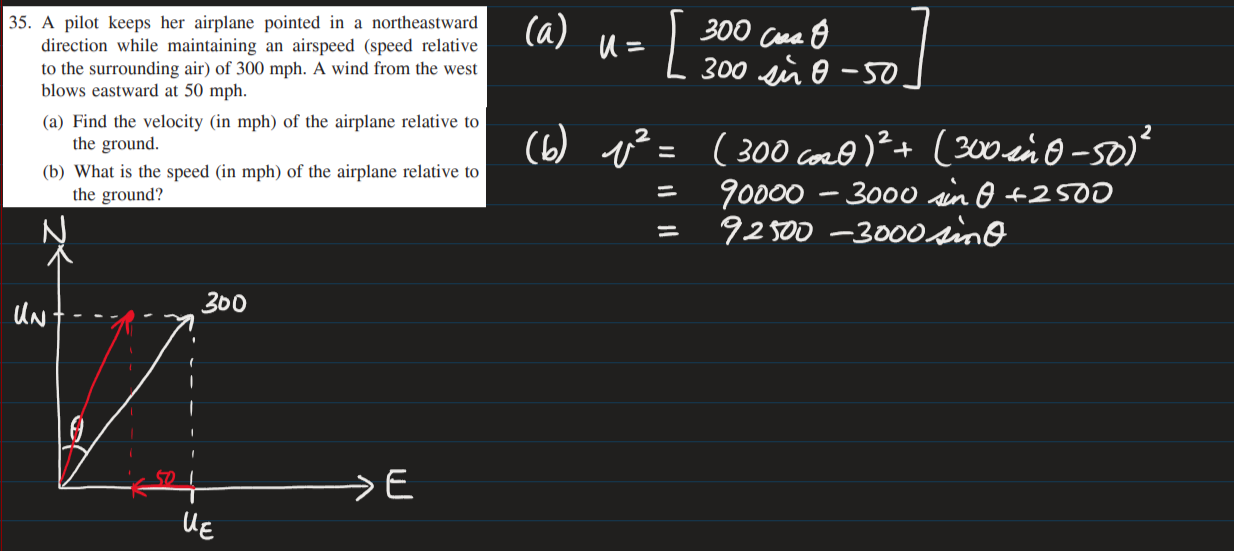 35. A pilot keeps her airplane pointed in a northeastward
direction while maintaining an airspeed (speed relative
to the surrounding air) of 300 mph. A wind from the west
blows eastward at 50 mph.
(a) Find the velocity (in mph) of the airplane relative to
the ground.
(b) What is the speed (in mph) of the airplane relative to
the ground?
(a) u = [ 300 cos θ
300 sin θ - 50 ]
(b) v² = (300 cos θ)² + (300 sin θ - 50)²
= 90000 - 3000 sin θ + 2500
= 92500 - 3000 sin θ
N
300
u_N
θ
50
E
u_E